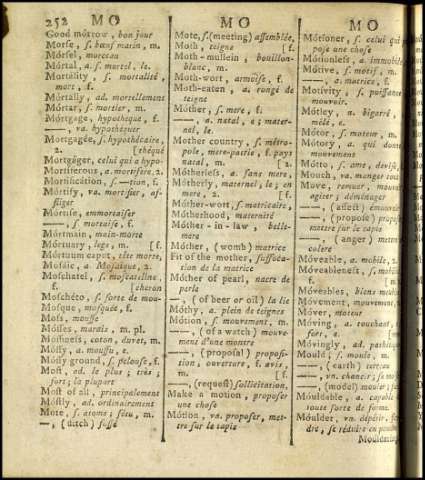 252 MO
Good mórrow, bon jour
Morse, s. bœuf marin, m.
Mórsel, morceau
Mórtal, a. s. mortel, le.
Mortálity, s. mortalité,
mort, f.
Mórtally, ad. mortellement
Mórtar, s. mortier, m.
Mórtgage, hypotheque, f.
—, va. hypothéquer
Mortgagée, s. hypothécaire,
2. [théqué
Mortgáger, celui qui a hypo-
Mortíferous, a. mortifére, 2.
Mortificátion, s. —tion, f.
Mórtify, va. mortifier, af-
fliger
Mórtise, emmortaiser
—, s. mortaise, f.
Mórtmain, main-morte
Mórtuary, legs, m. [f.
Mórtuum caput, tête morte,
Mosáic, a. Mosaïque, 2.
Moschatel, s. moscatelline,
f. [cheron
Moschéto, s. sorte de mou-
Mosque, mosquée, f.
Moss, mousse
Mósses, marais, m. pl.
Móssiness, coton, duvet, m.
Móssy, a. moussu, e.
Móssy ground, s. pelouse, f.
Most, ad. le plus; très;
fort; la plupart
Most of all, principalement
Móstly, ad. ordinairement
Mote, s. atome; fétu, m.
—, (ditch) fossé
MO
Mote, s. (meeting) assemblée,
Moth, teigne [f.
Moth-mullein, bouillon-
blanc, m.
Moth-wort, armoise, f.
Moth-eaten, a. rongé de
teigne
Móther, s. mere, f.
—, a. natal, e; mater-
nel, le.
Mother country, s. métro-
pole, mere-patrie, f. pays
natal, m. [2.
Mótherless, a. sans mere,
Mótherly, maternel, le; en
mere, 2. [f.
Móther-wort, s. matricaire,
Mótherhood, maternité
Móther-in-law, belle-
mere
Mócher, (womb) matrice
Fit of the mother, suffoca-
tion de la matrice
Mócher of pearl, nacre de
perle
—, (of beer or oil) la lie
Móthy, a. plein de teignes
Mótion, s. mouvement, m.
—, (of a watch) mouve-
ment d'une montre
—, (proposal) proposi-
tion, ouverture, f. avis,
m. [f.
—, (request) sollicitation,
Make a motion, proposer
une chose
Mótion, va. proposer, met-
tre sur le tapis
MO
Mótioner, s. celui qui
pose une chose
Mótionless, a. immobile
Mótive, s. motif, m.
—, a. motrice, f.
Motívity, s. puissance
mouvoir.
Mótley, a. bigarré
mêlé, e.
Mótor, s. moteur, m.
Mótory, a. qui donne
mouvement
Mótto, s. ame, devise,
Mouch, va. manger tout
Move, remuer, mouvoir
agiter; déménager
—, (affect) émouvoir
—, (propose) propos
mettre sur le tapis
—, (anger) mettre
colere
Móveable, a. mobile, 2.
Móveableness, s. mobilité
f.
Móveables, biens meubles
Móvement, mouvement,
Móver, moteur
Móving, a. touchant,
fort, e.
Móvingly, ad. pathétique
Mould, s. moule, m.
—, (earth) terreau
—, vn. chancir; s. mois
—, (model) mouler; fa
Móuldable, a. capable
toute sorte de forme
Móulder, vn. dépérir, fon
dre, se réduire en poussie
Mouldering